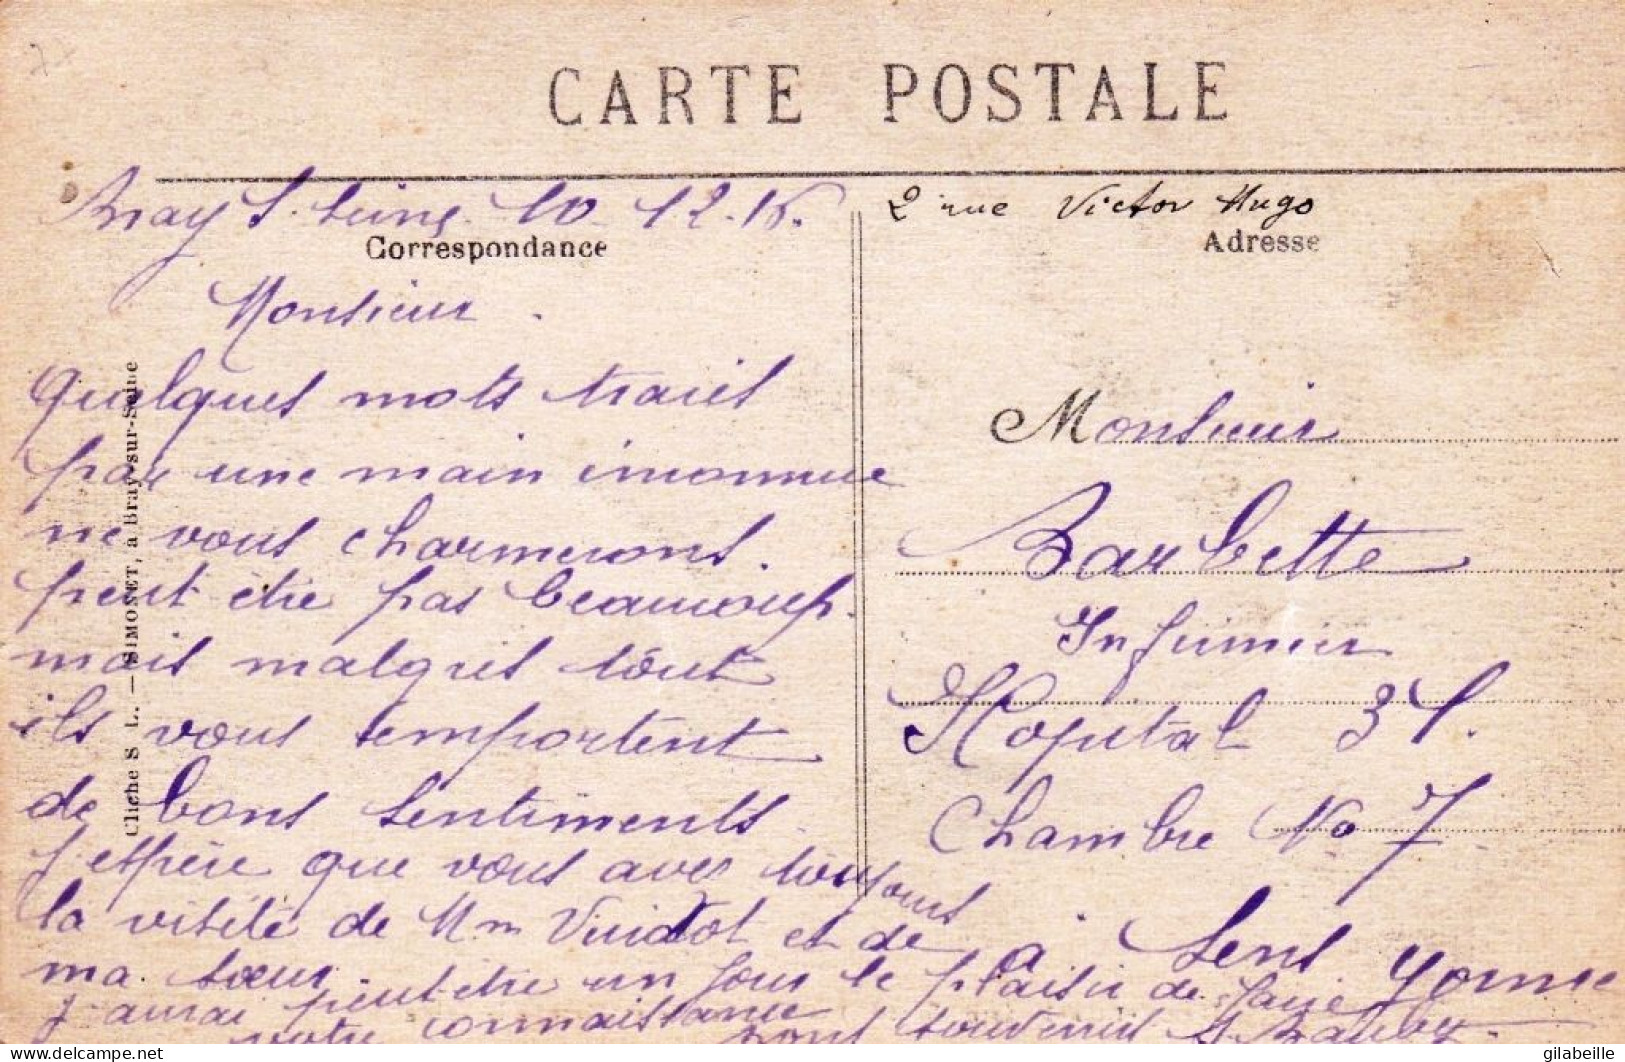 CARTE POSTALE
Bray s. Seine 10 12.16.
Correspondance
Monsieur.
Quelques mots tracés
par une main inconnue
ne vous charmerons
peut être pas beaucoup.
mais malgrés tout
ils vous emportent
de bons sentiments.
J espère que vous avez toujours
la visite de Mm Vuidot et de
ma sœur.
J aurai peut être un jour le plaisir de faire
votre connaissance
bons souvenirs
Cliché S L. — SIMONET, à Bray-sur-Seine
2 rue Victor Hugo
Adresse
Monsieur
Barbette
Infirmier
Hopital 31.
Chambre No 7
à Sens Yonne
gilabeille